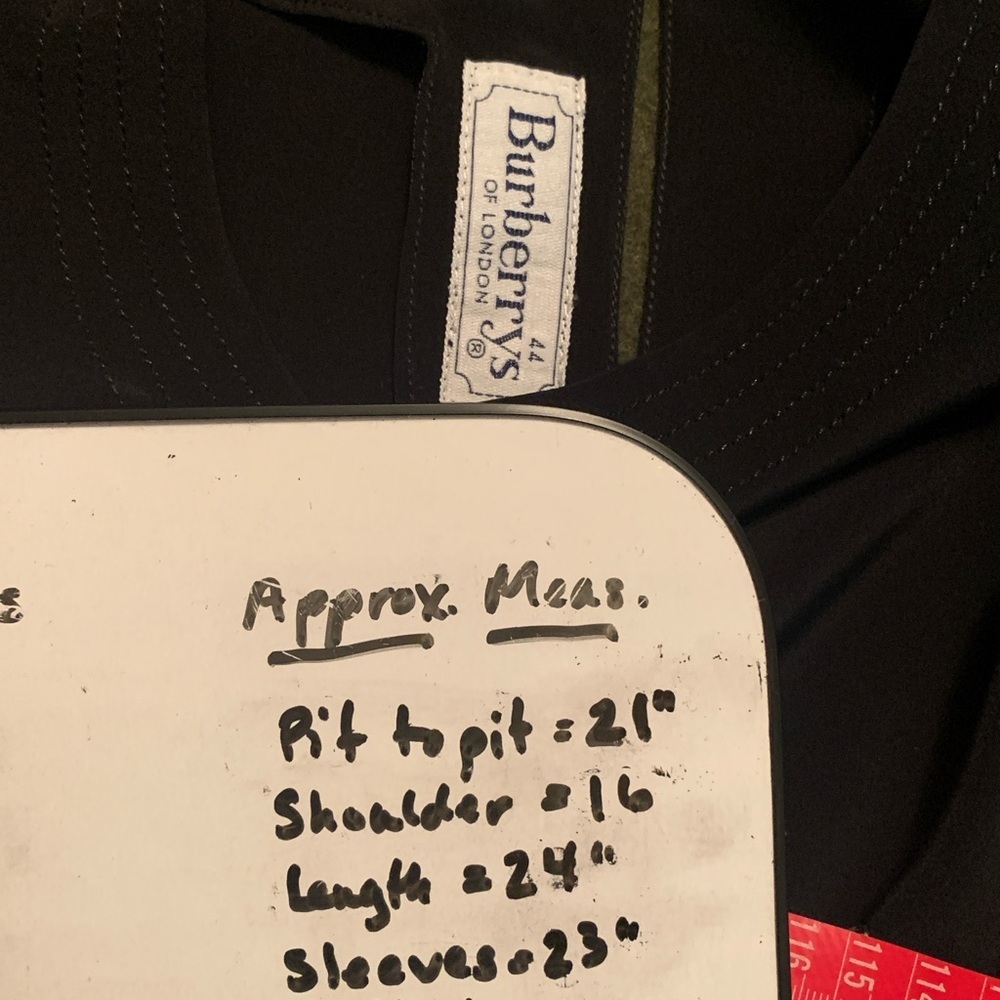 Burberrys
OF LONDON ®
44
Approx. Meas.
Pit to pit = 21"
Shoulder = 16"
Length = 24"
Sleeves = 23"
116 115